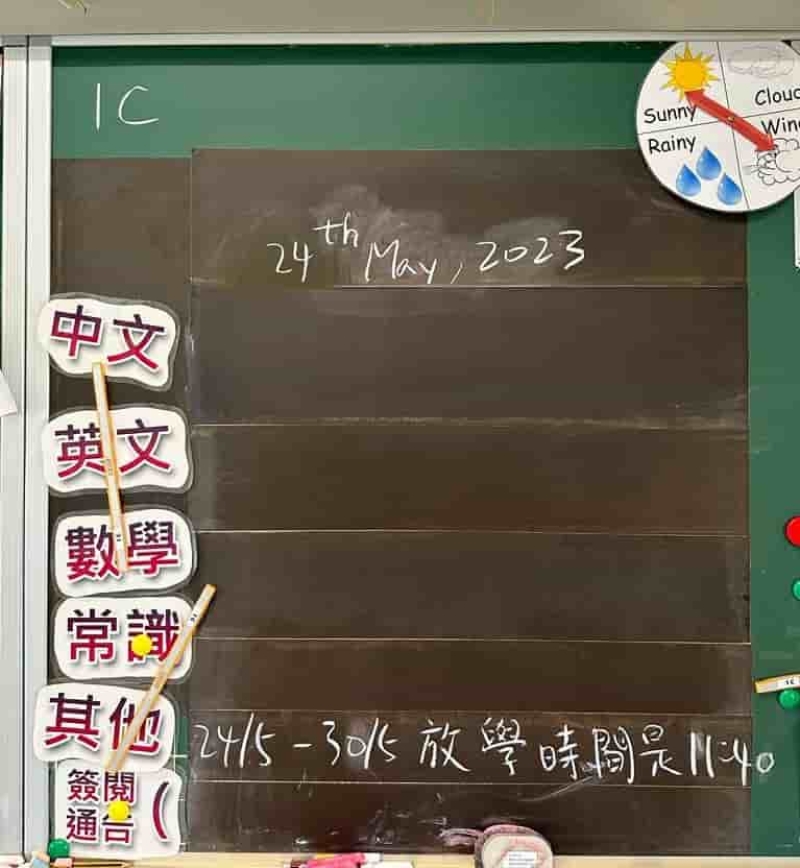 1C
Sunny
Rainy
24th May, 2023
中文
英文
數學
常識
其他
24/5 - 30/5 放學時間是11:40
簽閱
通告 (